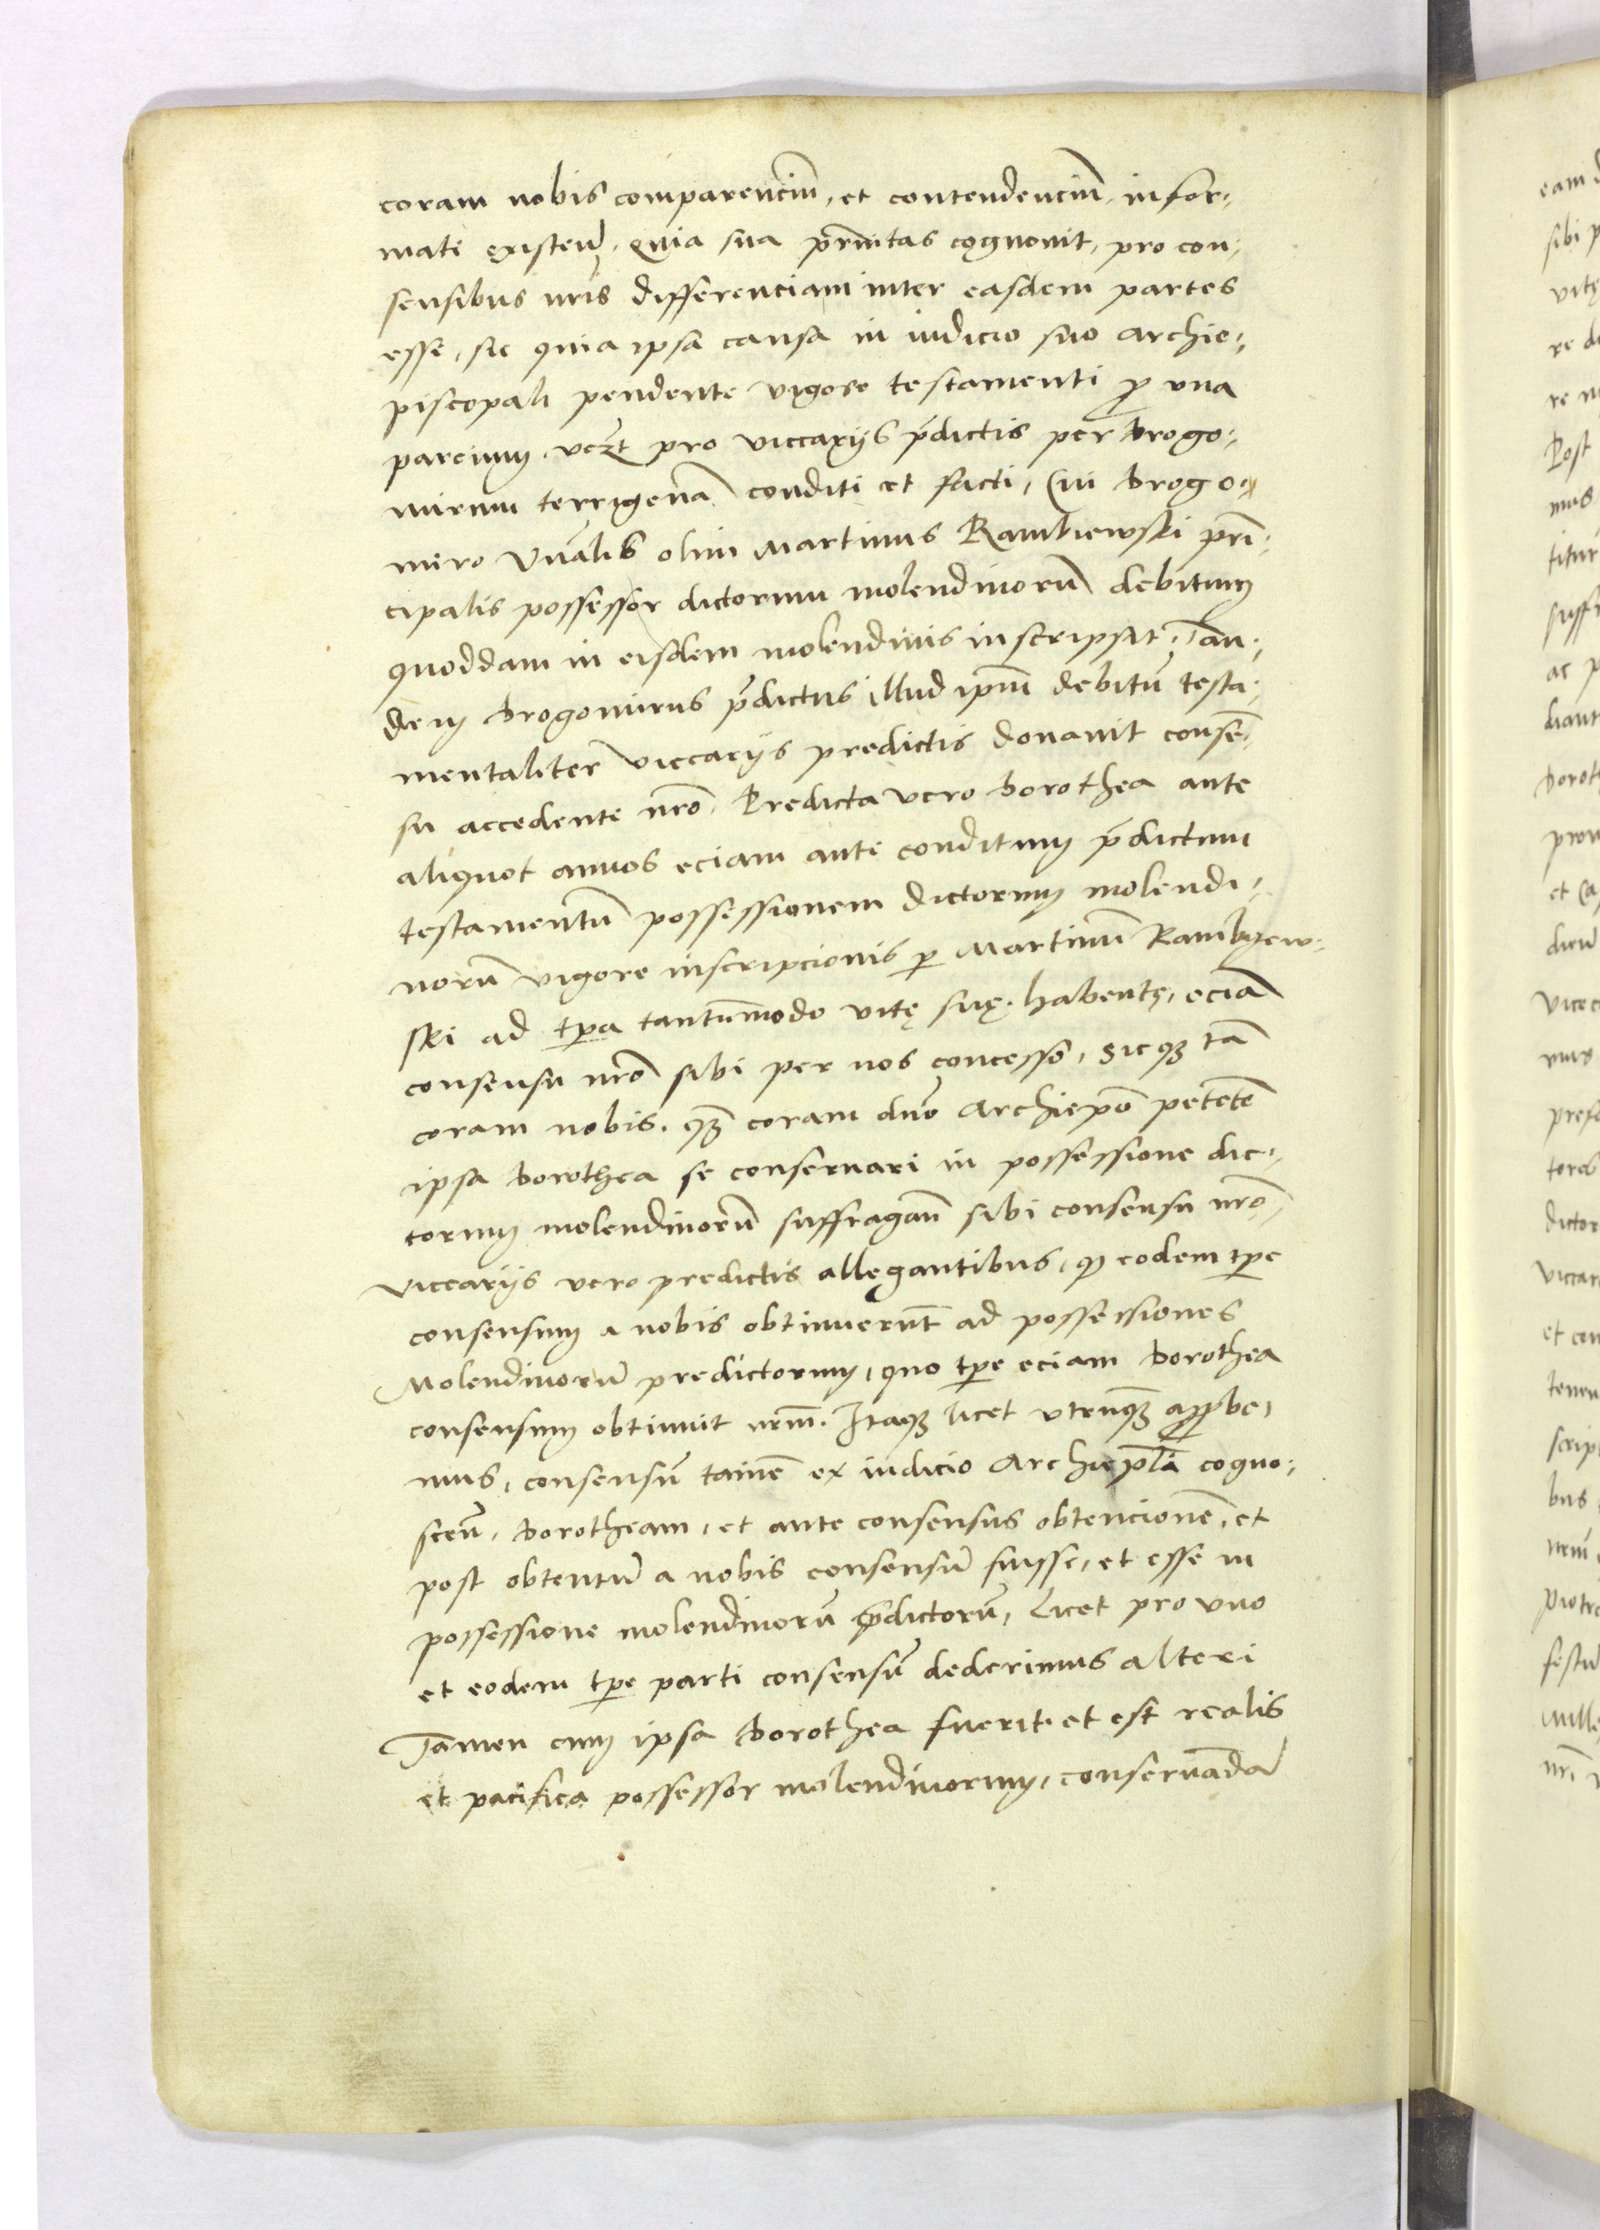 coram nobis comparenciũ, et contendenciũ, infor-
mati existeñ. Quia sua p̃rnitas cognovit, pro con-
sensibus nr̃is differenciam inter easdem partes
esse, sic quia ipsa causa in iudicio suo Archie-
piscopali pendente vigore testamenti p una
parcium, vezt pro viccarijs p̃dictis per Drogo-
mirum terrigenã conditi et facti, Cui Drogo-
miro Vñalis olim Martinus Rambiewski prĩ-
cipalis possessor dictorum molendinorũ debitum
quoddam in eisdem molendinis inscripsit, Tan-
dem Drogomirus p̃dictus illud ipm̃ debitũ testa-
mentaliter viccarijs predictis donavit consẽ-
su accedente nr̃o. Predicta vero Dorothea ante
aliquot annos eciam ante conditum p̃dictum
testamentũ possessionem dictorum molendi-
norũ vigore inscripcionis p Martinũ Rambyew-
ski ad tp̃a tantum̃odo vitę suę habentę, eciã
consensu nr̃o sibi per nos concesso, sicq3 tã
coram nobis, q̃3 coram dño Archiep̃o petẽtẽ
ipsa Dorothea se conservari in possessione dic-
torum molendinorũ suffragañ sibi consensu nr̃o
viccarijs vero predictis allegantibus, q eodem tp̃e
consensum a nobis obtinuerũt ad possessiones
Molendinorũ predictorum, quo tp̃e eciam Dorothea
consensum obtinuit nr̃m. Itaq3 licet utrumq3 approbe-
mus, consensũ tamẽ ex iudicio Archiep̃li cogno-
sceñ, Dorotheam, et ante consensus obtencionẽ, et
post obtentũ a nobis consensũ fuisse, et esse in
possessione molendinorũ p̃dictorũ, Licet pro uno
et eodem tp̃e parti consensũ dederimus alteri
Tamen cum ipsa Dorothea fuerit et est realis
et pacifica possessor molendinorum, conservãdã